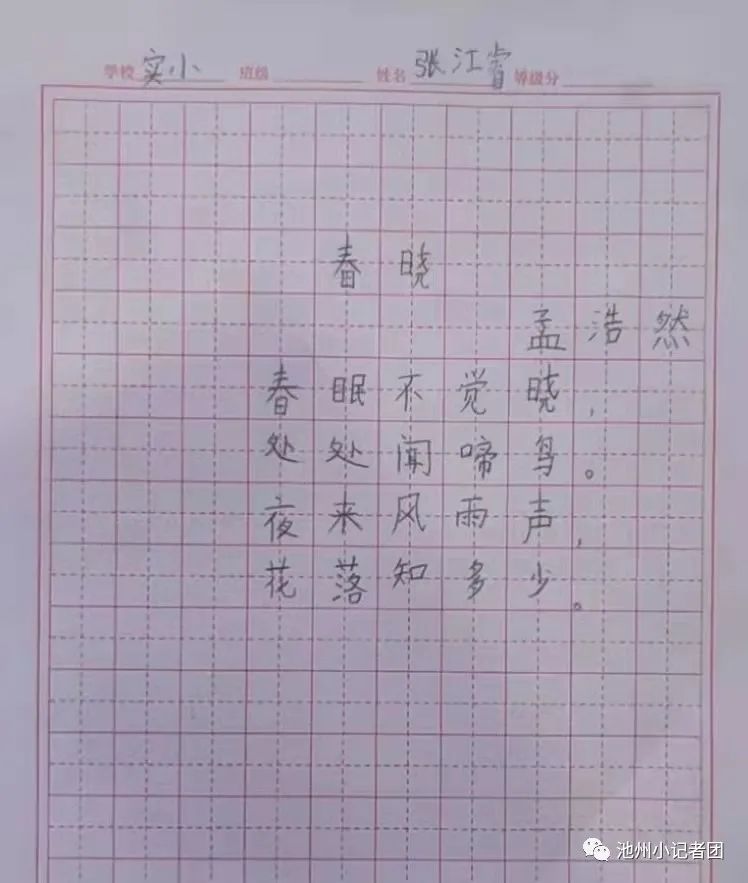 学校 实小 班级 姓名 张江睿 等级分
春晓
孟浩然
春眠不觉晓，
处处闻啼鸟。
夜来风雨声，
花落知多少。
池州小记者团